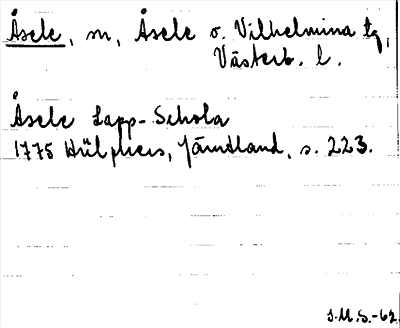 Åsele, sn, Åsele o. Vilhelmina tg,
Västerb. l.
Åsele Lapp-Schola
1775 Hülphers, Jämtland, s. 223.
S.M.S.-62